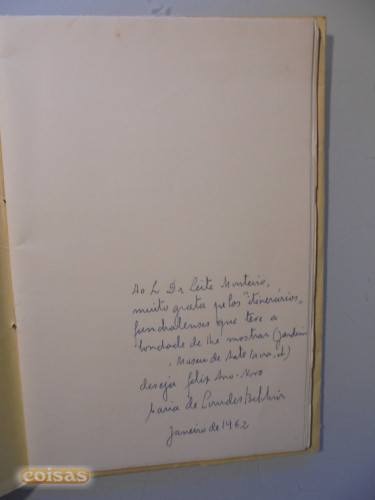 Ao Sr Dr Leite Monteiro,
muito grata pelos "itinerários"
funchalenses que teve a
bondade de lhe mostrar (Jardim
, Museu de Arte Sacra, etc)
deseja feliz Ano-Novo
Maria de Lourdes
Janeiro de 1962
coisas